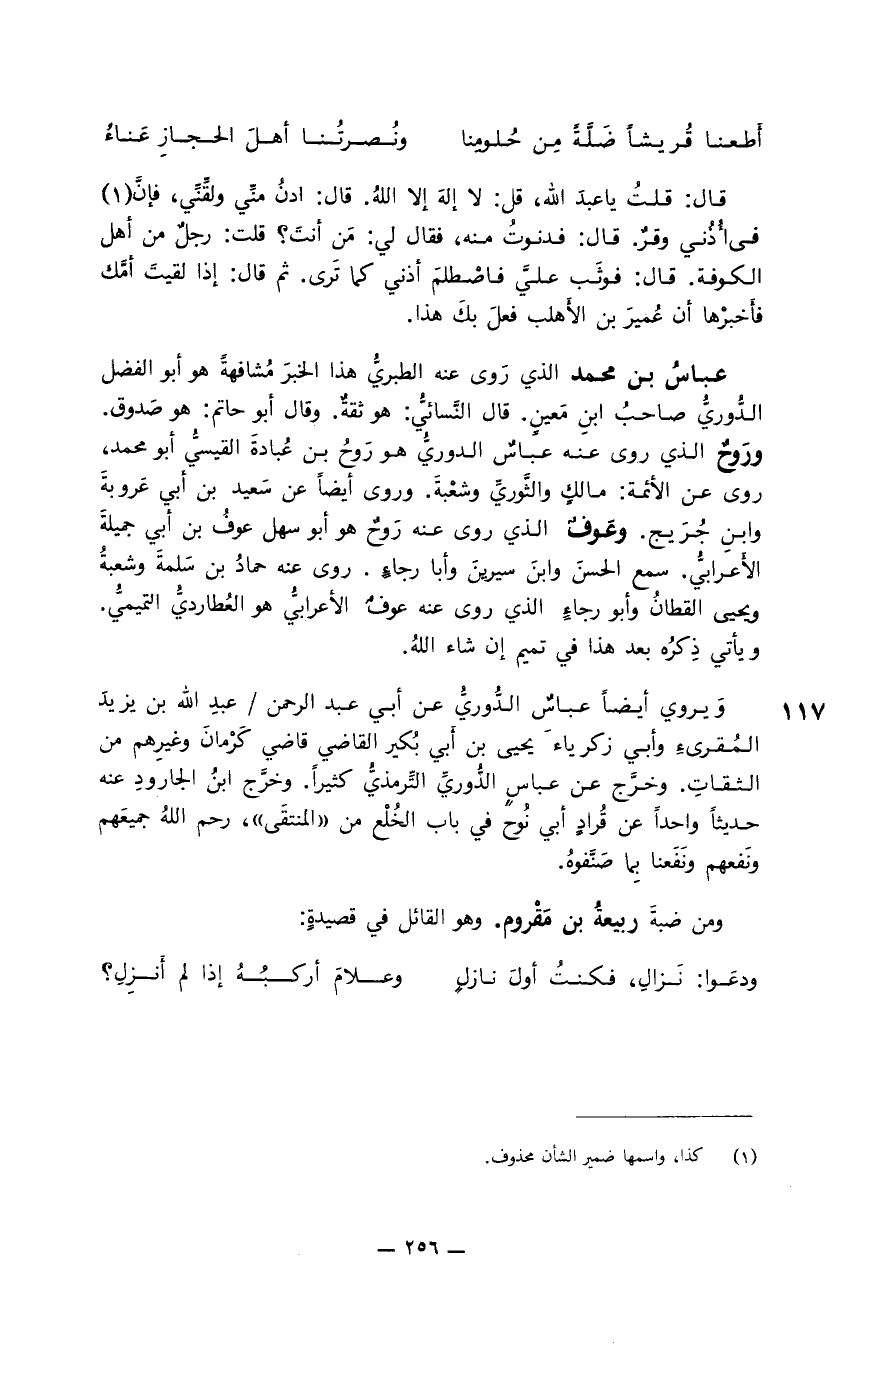 أَطعنا قُريشاً ضَلَّةً مِن حُلومِنا ونُصرتُنا أهلَ الحجازِ عَناءُ
قال: قلتُ ياعبدَ الله، قل: لا إلهَ إلا اللهُ. قال: ادنُ منِّي ولقِّنِّي، فإنَّ(١)
في أُذُني وقرٌ. قال: فدنوتُ منه، فقال لي: مَن أنتَ؟ قلت: رجلٌ من أهل
الكوفة. قال: فوثَب عليَّ فاصْطلمَ أذني كما تَرى. ثم قال: إذا لقيتَ أمَّك
فأخبرْها أن عُميرَ بن الأَهلب فعلَ بكَ هذا.
عباسُ بن محمد الذي رَوى عنه الطبريُّ هذا الخبرَ مُشافهةً هو أبو الفضل
الدُّوريُّ صاحبُ ابنِ مَعينٍ. قال النَّسائيُّ: هو ثقةٌ. وقال أبو حاتم: هو صَدوق.
ورَوحٌ الذي روى عنه عباسٌ الدوريُّ هو رَوحُ بن عُبادةَ القيسيُّ أبو محمد،
روى عن الأئمة: مالكٍ والثَّوريِّ وشعْبةَ. وروى أيضاً عن سَعيد بن أبي عَروبةَ
وابنِ جُرَيج. وعَوفٌ الذي روى عنه رَوحٌ هو أبو سهل عوفُ بن أبي جميلةَ
الأعرابيُّ. سمع الحسنَ وابنَ سيرينَ وأبا رجاءٍ. روى عنه حمادُ بن سَلمةَ وشعبةُ
ويحيى القطانُ وأبو رجاءٍ الذي روى عنه عوفٌ الأعرابيُّ هو العُطارديُّ التميميُّ.
ويأتي ذِكرُه بعد هذا في تميم إن شاء اللهُ.
وَيروي أيضاً عباسٌ الدُّوريُّ عن أبي عبد الرحمن / عبدِ الله بن يزيدَ ١١٧
المُقرىءِ وأبي زكرياءَ يحيى بن أَبي بُكير القاضي قاضي كَرْمانَ وغيرِهم من
الثقاتِ. وخرَّج عن عباسٍ الدُّوريِّ التِّرمذيُّ كثيراً. وخرَّج ابنُ الجارودِ عنه
حديثاً واحداً عن قُرادٍ أبي نُوحٍ في باب الخُلْع من «المنتقَى»، رحم اللهُ جميعَهم
ونَفعهم ونَفَعنا بِما صَنَّفوهُ.
ومن ضبةَ ربيعةُ بن مَقْروم. وهو القائل في قصيدةٍ:
ودعَوا: نَزالِ، فكنتُ أولَ نازلٍ وعلامَ أركبُهُ إذا لم أَنزِلِ؟
(١) كذا، واسمها ضمير الشأن محذوف.
— ٢٥٦ —